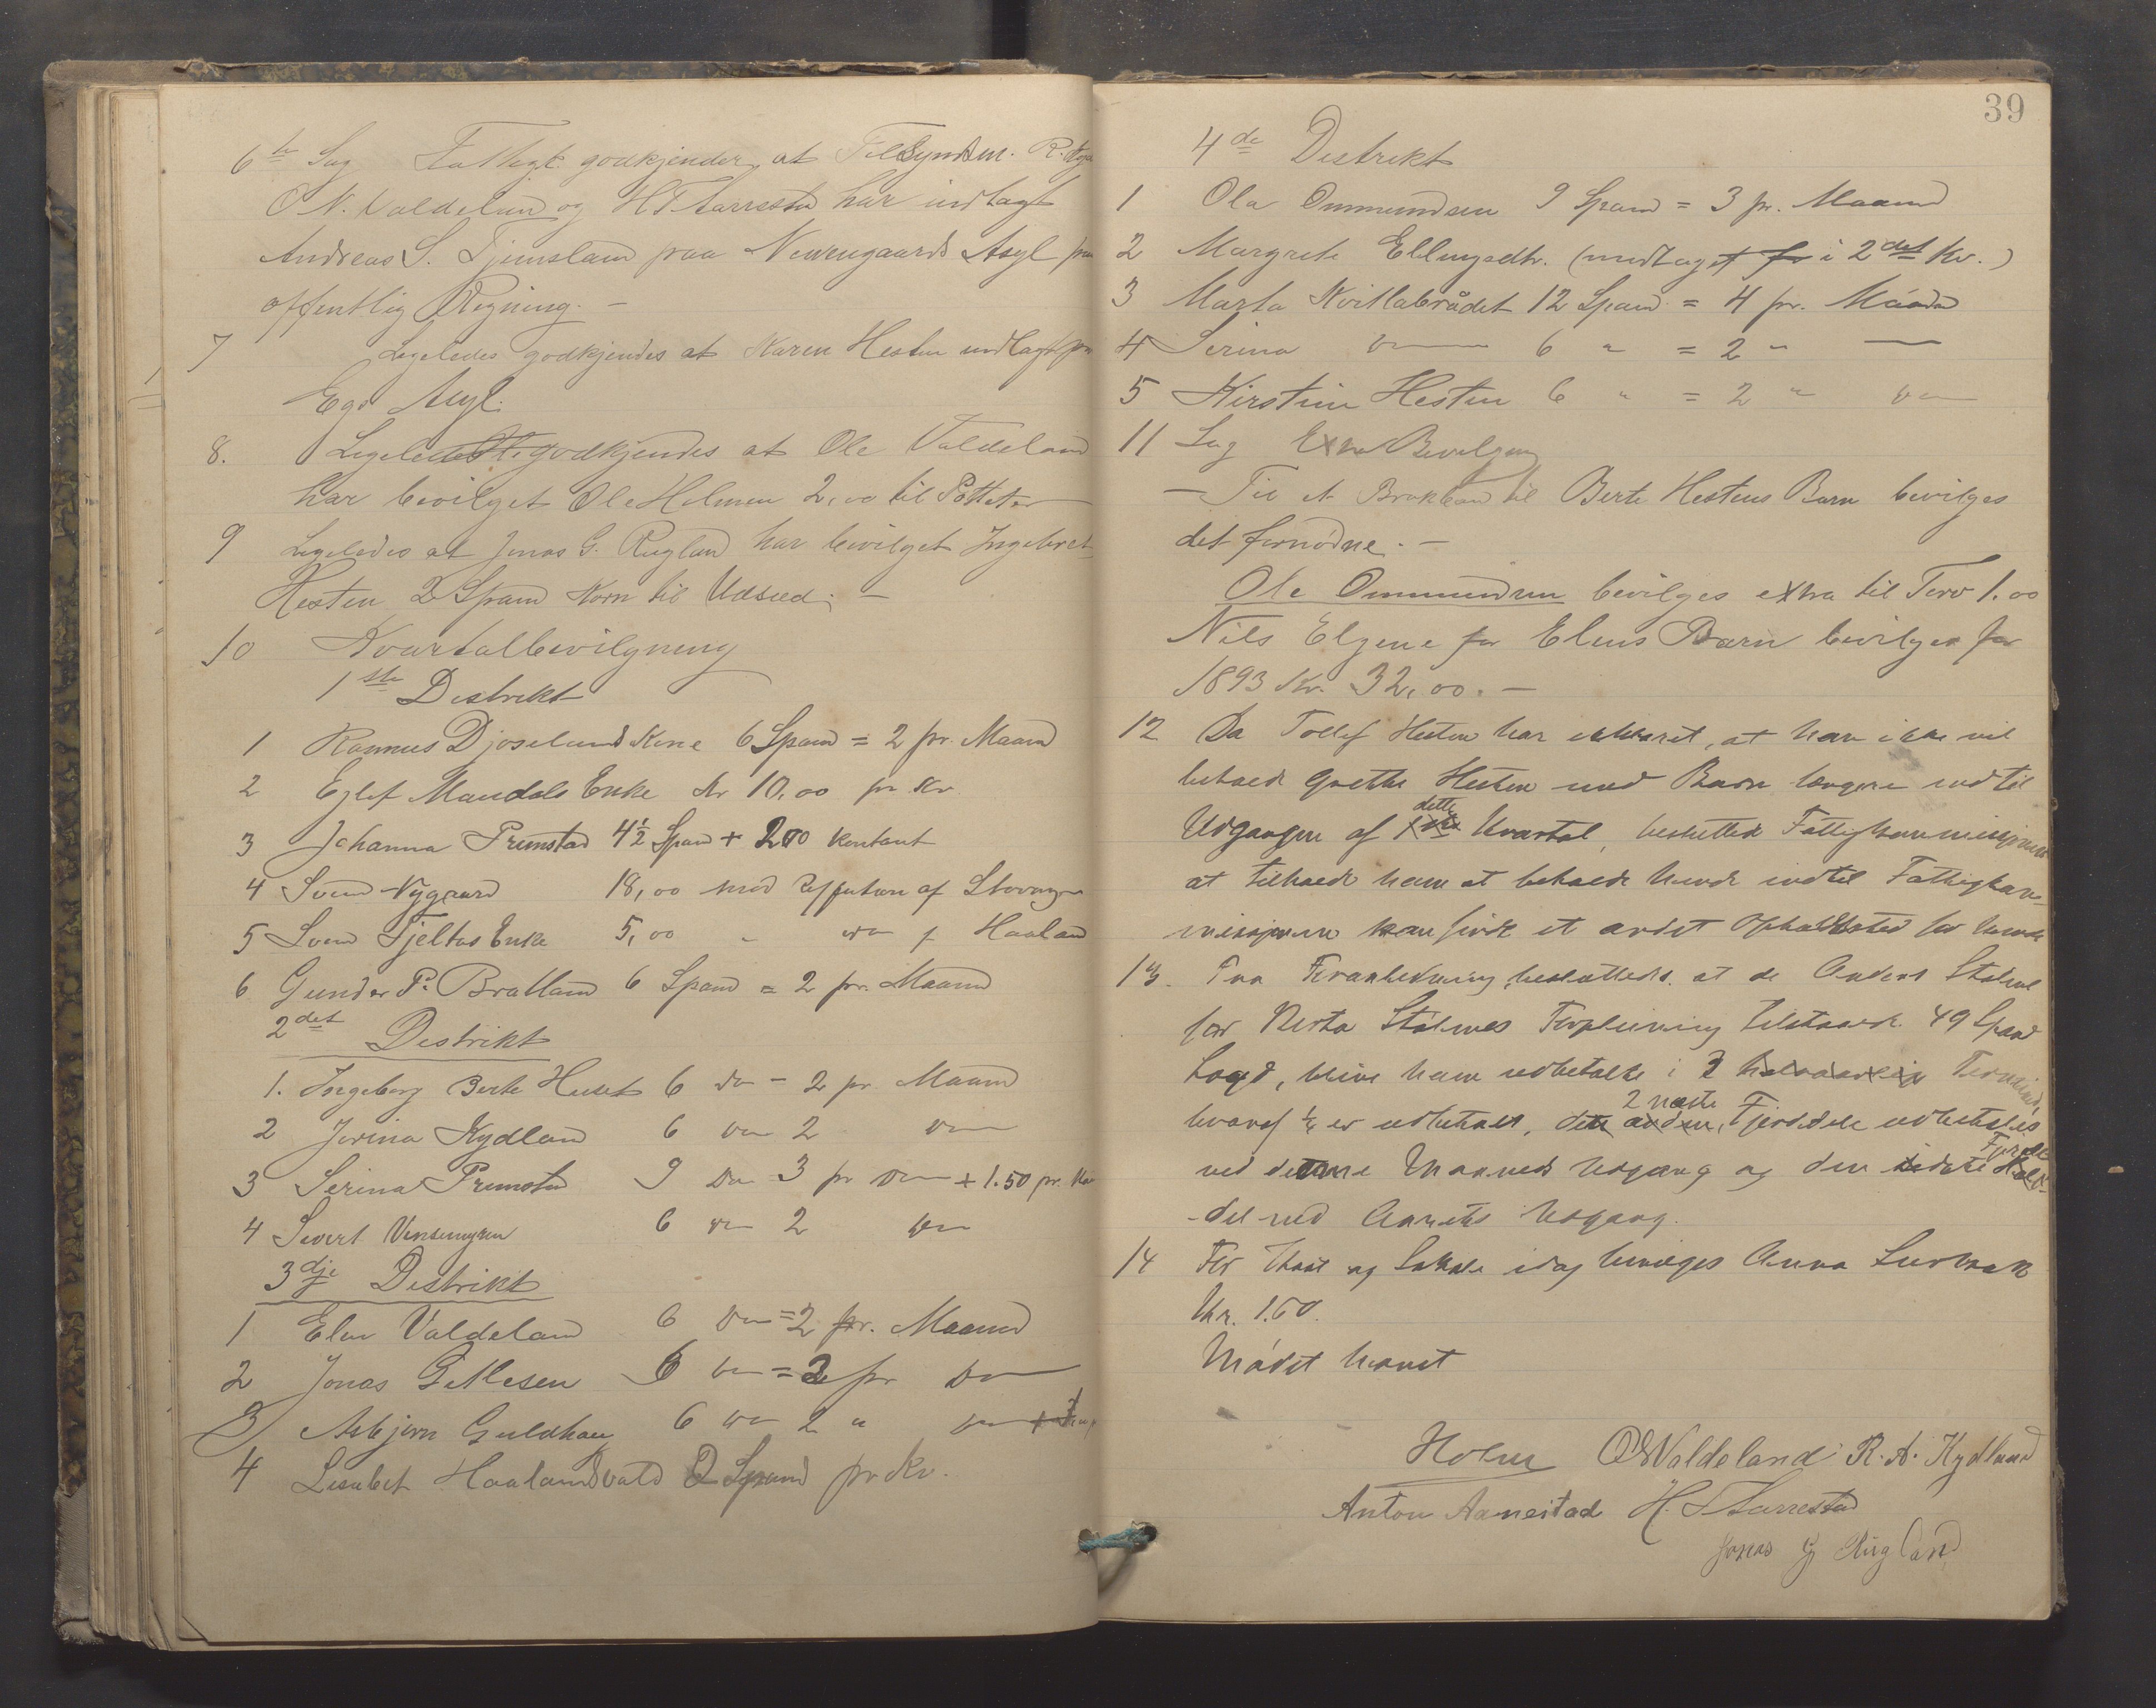 6te Sag Fattigk. godkjender, at Tilsynsm. R.
O N. Valdeland og H T Tarrestad har indlagt
Andreas S. Tjemsland paa Nevengaards Asyl paa
offentlig Regning. —
7 Ligeledes godkjendes at Karen Hesten indlagt paa
Egs Asyl.
8. Ligeledes godkjendes at Ole Valdeland
har bevilget Ole Holmen 2,00 til Potteter
9 Ligeledes at Jonas G. Rugland har bevilget Ingebret
Hesten 2 Spand Korn til Udsæd; —
10 Kvartalbevilgning
1ste Distrikt
1 Rasmus Djoselands Kone 6 Spand = 2 pr. Maaned
2 Eglef Maudals Enke Kr 10,00 pr Kv.
3 Johanna Prumstad 4½ Spand + 200 kontant
4 Svend Nygaard 18,00 mod Refusion af Stavanger
5 Svend Tjeltas Enke 5,00 " do f Haaland
6 Gunder P. Bratland 6 Spand = 2 pr. Maaned
2det Distrikt
1. Ingeborg Berte Huset 6 do = 2 pr Maaned
2 Jorina Kydland 6 do 2 do
3 Serina Prumstad 9 do 3 pr do + 1.50 pr.
4 Sivert 6 do 2 do
3dje Distrikt
1 Elen Valdeland 6 do = 2 pr. Maaned
2 Jonas Gitlesen 6 do = 2 pr do
3 Asbjørn Guldhaug 6 do 2 " do
4 Lisabet Haalandsvald 2 Spand pr Kv.
39
4de Distrikt
1 Ola Ommundsen 9 Spand = 3 pr. Maaned
2 Margrete Ellingsdtr. (modtaget for i 2det Kv.)
3 Marta Kvitlabrådet 12 Spand = 4 pr. Måned
4 Serina do 6 " = 2 " —
5 Kirstine Hesten 6 " = 2 " do
11 Sag Extra Bevilgning
— Til et Brokbaand til Berte Hestens Barn bevilges
det fornødne. —
Ole Ommundsen bevilges extra til Torv 1.00
Nils Elgene for Elens Barn bevilges for
1893 Kr. 32,00. —
12 Da Tollef Hesten har erklæret, at han ikke vil
beholde Grethe Hesten med Barn længere end til
Udgangen af 1ste dette Kvartal, besluttede Fattigkommissionen
at tilholde ham at beholde hende indtil Fattigkom-
missionen kan finde et andet Opholdssted for hende
13. Paa Foranledning besluttedes, at de Anders Stølene
for Berta Stølenes Forpleining tilstaaede 49 Spand
Laagd, blive ham udbetalte i 3 halvaarlige Terminer,
hvoraf ¼ er udbetalt, den anden, 2 næste Fjerdedele udbetales
ved denne Maaneds Udgang og den sidste Halv- Fjerde
-del ved Aarets Udgang.
14 For Hus og Lokale idag bevilges Anna
Kr. 1.60.
Mødet hævet
Holm ON Valdeland R. A. Kydland
Anton Aanestad H. T Tarrestad
Jonas G Rugland